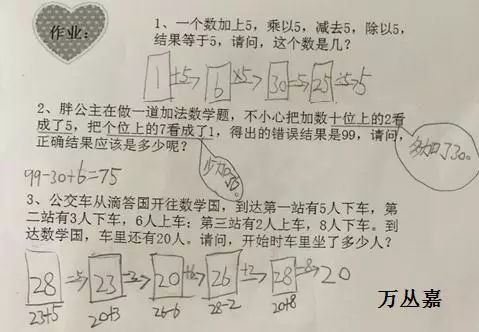 作业:
1、一个数加上5，乘以5，减去5，除以5，
结果等于5，请问，这个数是几？
1 +5→ 6 ×5→ 30 -5→ 25 ÷5→5
2、胖公主在做一道加法数学题，不小心把加数十位上的2看
成了5，把个位上的7看成了1，得出的错误结果是99，请问，
正确结果应该是多少呢？
多加了30。
99-30+6=75
3、公交车从滴答国开往数学国，到达第一站有5人下车，第
二站有3人下车，6人上车；第三站有2人上车，8人下车。到
达数学国，车里还有20人。请问，开始时车里坐了多少人？
28 -5→ 23 -3→ 20 +6→ 26 +2→ 28 -8→ 20
23+5 20+3 26-6 28-2 20+8
万丛嘉